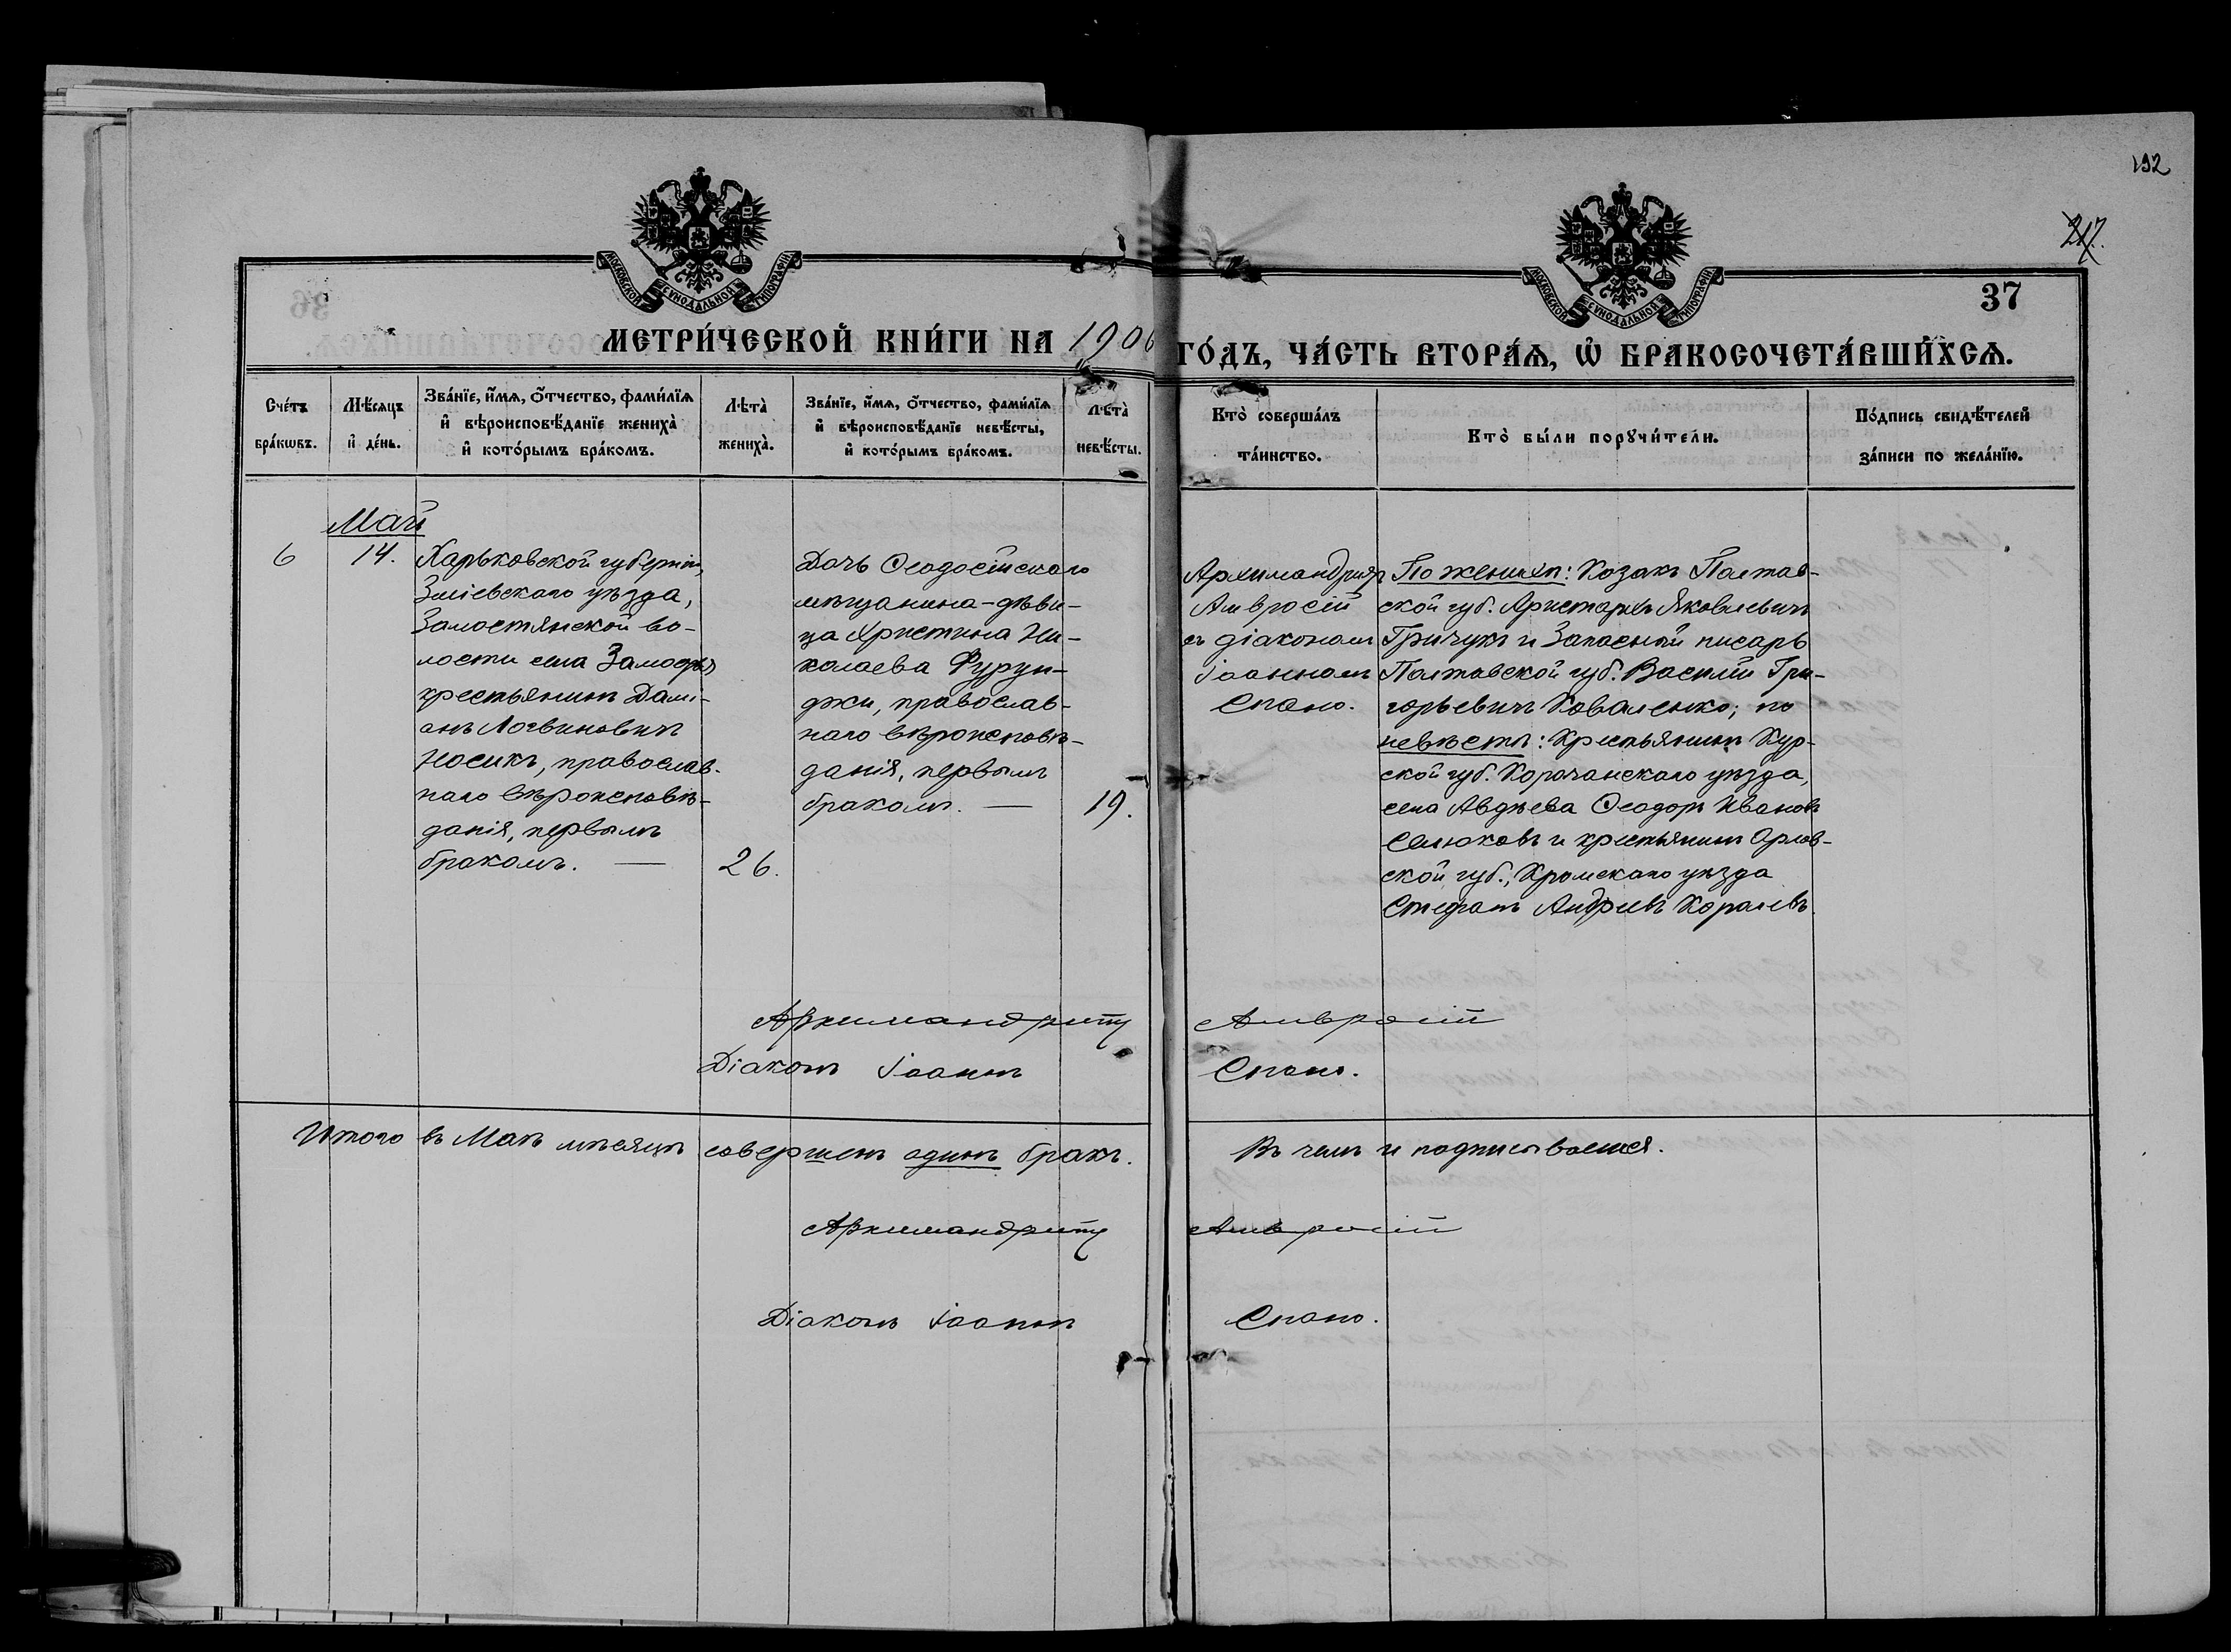 192
217.
37
МОСКОВСКОЙ СУНОДАЛЬНОЙ ТИПОГРАФІИ
МОСКОВСКОЙ СУНОДАЛЬНОЙ ТИПОГРАФІИ
МЕТРИ́ЧЕСКОЙ КНИ́ГИ НА 1906 ГО́ДЪ, ЧА́СТЬ ВТОРА́Я, Ѡ БРАКОСОЧЕТА́ВШИХСЯ.
Сче́тъ бра́кѡвъ.
Мѣ́сяцъ и де́нь.
Зва́нїе, и҆́мя, о҆́тчество, фами́лїя
и҆ вѣроисповѣ́данїе жениха̀
и҆ кото́рымъ бра́комъ.
Лѣта̀ жениха̀.
Зва́нїе, и҆́мя, о҆́тчество, фами́лїя
и҆ вѣроисповѣ́данїе невѣ́сты,
и҆ кото́рымъ бра́комъ.
Лѣта̀ невѣ́сты.
Кто̀ соверша́лъ
та́инство.
Кто̀ бы́ли порꙋчи́тели.
По́дпись свидѣ́телей
за́писи по жела́нїю.
Май
6
14.
Харьковской губерніи,
Зміевскаго уѣзда,
Замостянской во-
лости села Замостья
крестьянинъ Дамі-
анъ Логвиновичъ
Носикъ, православ-
наго вѣроисповѣ-
данія, первымъ
бракомъ. —
26.
Дочь Ѳеодосійскаго
мѣщанина - дѣви-
ца Христина Ни-
колаева Фурун-
джи, православ-
наго вѣроисповѣ-
данія, первымъ
бракомъ. —
19.
Архимандритъ
Амвросій
съ діакономъ
Іоанномъ
Спано.
По женихѣ: Козакъ Полтав-
ской губ. Аристархъ Яковлевичъ
Гричукъ и Запасный писарь
Полтавской губ. Василій Гри-
горьевичъ Коваленко; по
невѣстѣ: Крестьянинъ Кур-
ской губ. Корочанскаго уѣзда,
села Авдѣева Ѳеодоръ Ивановъ
Селюковъ и крестьянинъ Орлов-
ской губ., Кромскаго уѣзда
Стефанъ Андреевъ Королевъ.
Архимандритъ Амвросій
Діаконъ Іоаннъ Спано.
Итого въ Маѣ мѣсяцѣ совершенъ одинъ бракъ. Въ чемъ и подписываемся.
Архимандритъ Амвросій
Діаконъ Іоаннъ Спано.